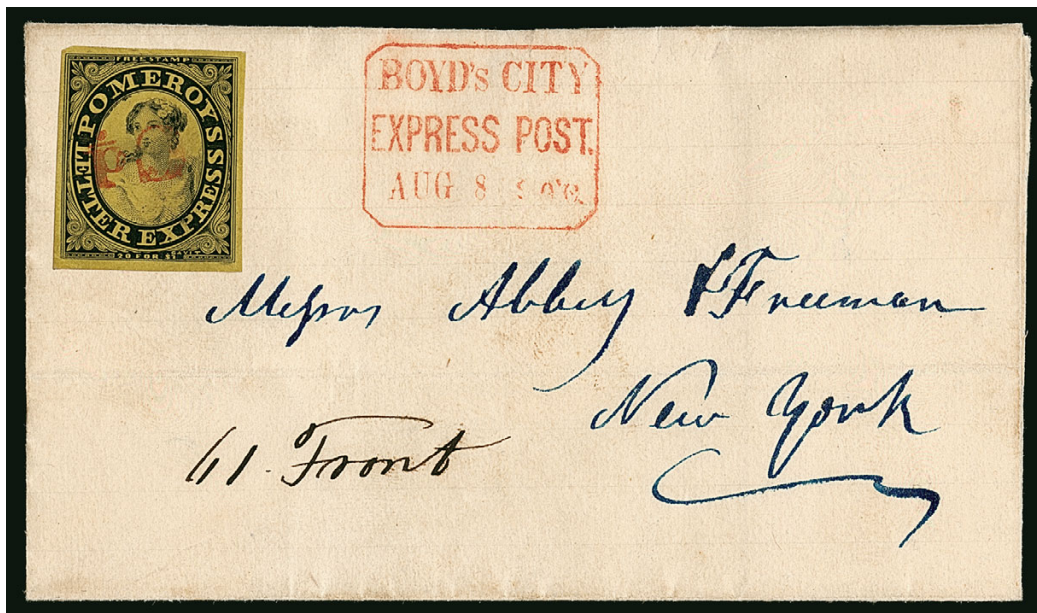 FREE STAMP
POMEROYS
LETTER EXPRESS
20 FOR $1
BOYD'S CITY
EXPRESS POST.
AUG 8
Messrs Abbey & Freeman
New York
61. Front